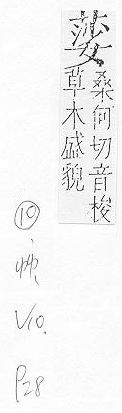 桑何切音梭
草木盛貌
⑩
V10.
P28